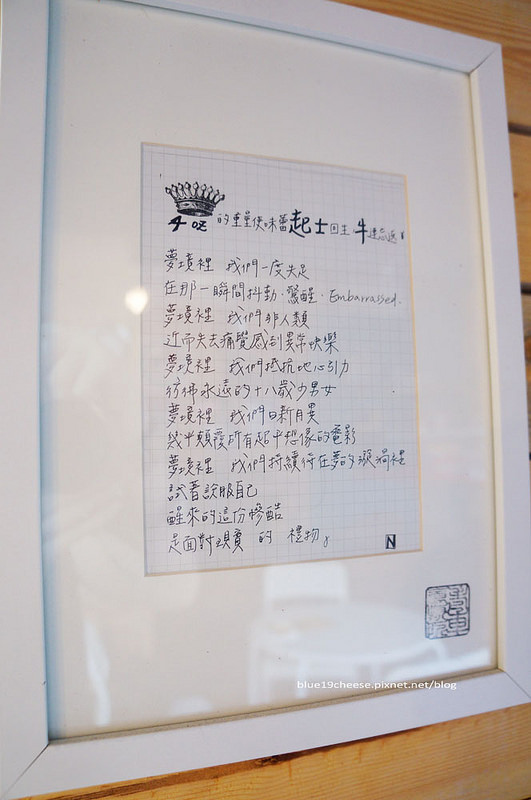 4 oz 的重量使味蕾起士回生 牛連忘返!
夢境裡 我們一度失足
在那一瞬間抖動.驚醒.Embarrassed.
夢境裡 我們非人類
近而失去痛覺感到異常快樂
夢境裡 我們抵抗地心引力
彷彿永遠的十八歲少男女
夢境裡 我們日新月異
幾乎顛覆所有超乎想像的電影
夢境裡 我們持續待在夢的漩渦裡
試著說服自己
醒來的這份慘酷
是面對現實 的 禮物。
N
blue19cheese.pixnet.net/blog